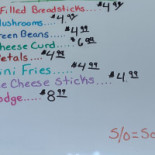 Filled Breadsticks.... $4.99
Mushrooms.... $4.99
reen Beans.... $4.99
heese Curd.... $6.99
etals.... $4.99
ini Fries..... $4.99
e Cheese Sticks.... $4.99
odge.... $8.99
S/o=So